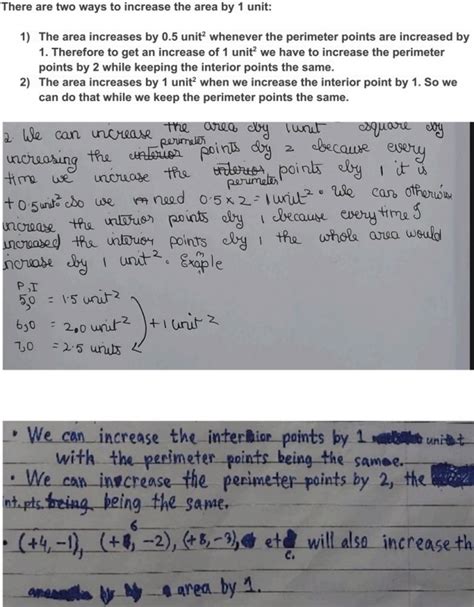 There are two ways to increase the area by 1 unit:
1) The area increases by 0.5 unit² whenever the perimeter points are increased by
1. Therefore to get an increase of 1 unit² we have to increase the perimeter
points by 2 while keeping the interior points the same.
2) The area increases by 1 unit² when we increase the interior point by 1. So we
can do that while we keep the perimeter points the same.
2 We can increase the area by 1 unit square by
increasing the perimeter points by 2 because every
time we increase the perimeter points by 1 it is
+0.5 unit² so we need 0.5 x 2 = 1 unit². We can otherwise
increase the interior points by 1 because everytime I
increased the interior points by 1 the whole area would
increase by 1 unit². Exmple
P,I
5,0 = 1.5 unit²
6,0 = 2.0 unit² +1 unit²
7,0 = 2.5 units
• We can increase the interior points by 1
with the perimeter points being the same.
• We can increase the perimeter points by 2, the
int. pts. being the same.
• (+4, -1), (+6, -2), (+8, -3), etc. will also increase th
area by 1.